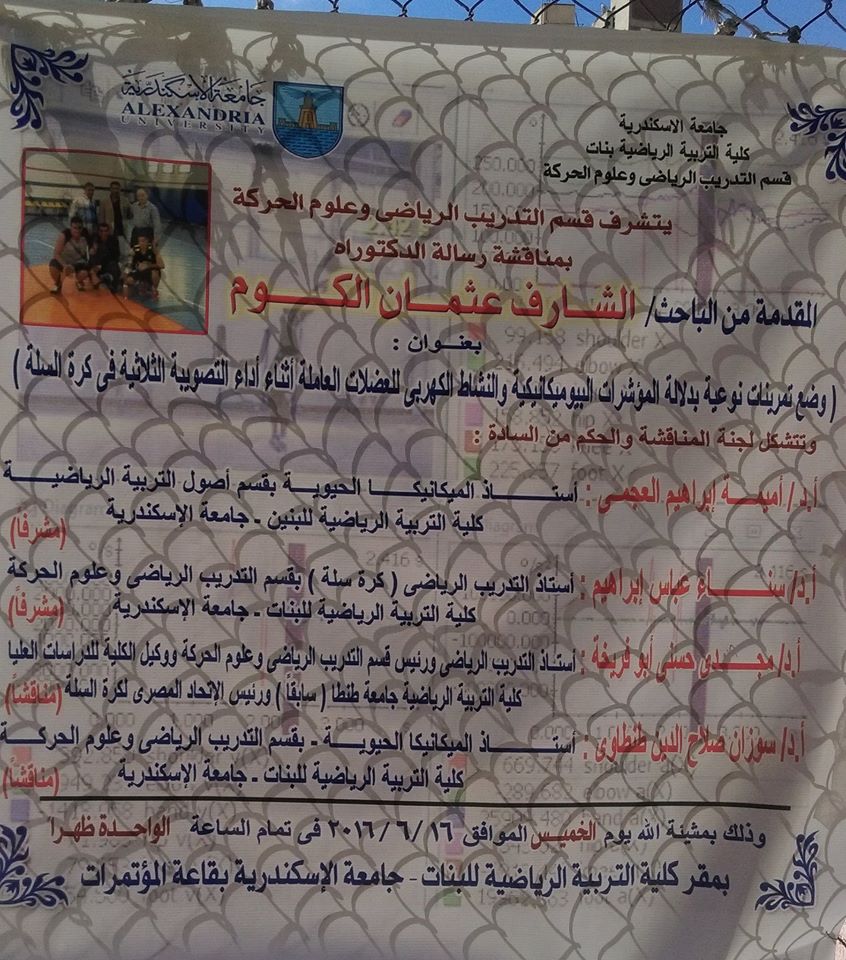 جامعة الاسكندرية
ALEXANDRIA
UNIVERSITY
جامعة الاسكندرية
كلية التربية الرياضية بنات
قسم التدريب الرياضى وعلوم الحركة
يتشرف قسم التدريب الرياضى وعلوم الحركة
بمناقشة رسالة الدكتوراه
المقدمة من الباحث/ الشارف عثمان الكوم
بعنوان :
( وضع تمرينات نوعية بدلالة المؤشرات البيوميكانيكية والنشاط الكهربى للعضلات العاملة أثناء أداء التصويبة الثلاثية فى كرة السلة )
وتتشكل لجنة المناقشة والحكم من السادة :
أ.د/ أميمة إبراهيم العجمى : أستاذ الميكانيكا الحيوية بقسم أصول التربية الرياضية
كلية التربية الرياضية للبنين - جامعة الإسكندرية (مشرفاً)
أ.د/ سناء عباس إبراهيم : أستاذ التدريب الرياضى ( كرة سلة ) بقسم التدريب الرياضى وعلوم الحركة
كلية التربية الرياضية للبنات - جامعة الإسكندرية (مشرفاً)
أ.د/ مجدى حسنى أبو فريخة : أستاذ التدريب الرياضى ورئيس قسم التدريب الرياضى وعلوم الحركة ووكيل الكلية للدراسات العليا
كلية التربية الرياضية جامعة طنطا ( سابقاً ) ورئيس الإتحاد المصرى لكرة السلة (مناقشاً)
أ.د/ سوزان صلاح الدين طنطاوى : أستاذ الميكانيكا الحيوية - بقسم التدريب الرياضى وعلوم الحركة
كلية التربية الرياضية للبنات - جامعة الإسكندرية (مناقشاً)
وذلك بمشيئة الله يوم الخميس الموافق ٢٠١٦/٦/١٦ فى تمام الساعة الواحدة ظهراً
بمقر كلية التربية الرياضية للبنات - جامعة الإسكندرية بقاعة المؤتمرات